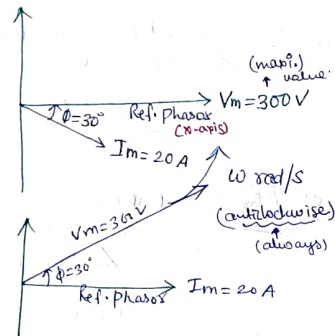 (maxi.)
↑ value.
Vm = 300 V
Ref. Phasor
(x-axis)
ϕ=30°
Im = 20 A
ω rad/s
(anticlockwise)
↑
(always)
Vm = 300V
ϕ=30°
Ref. Phasor
Im = 20 A